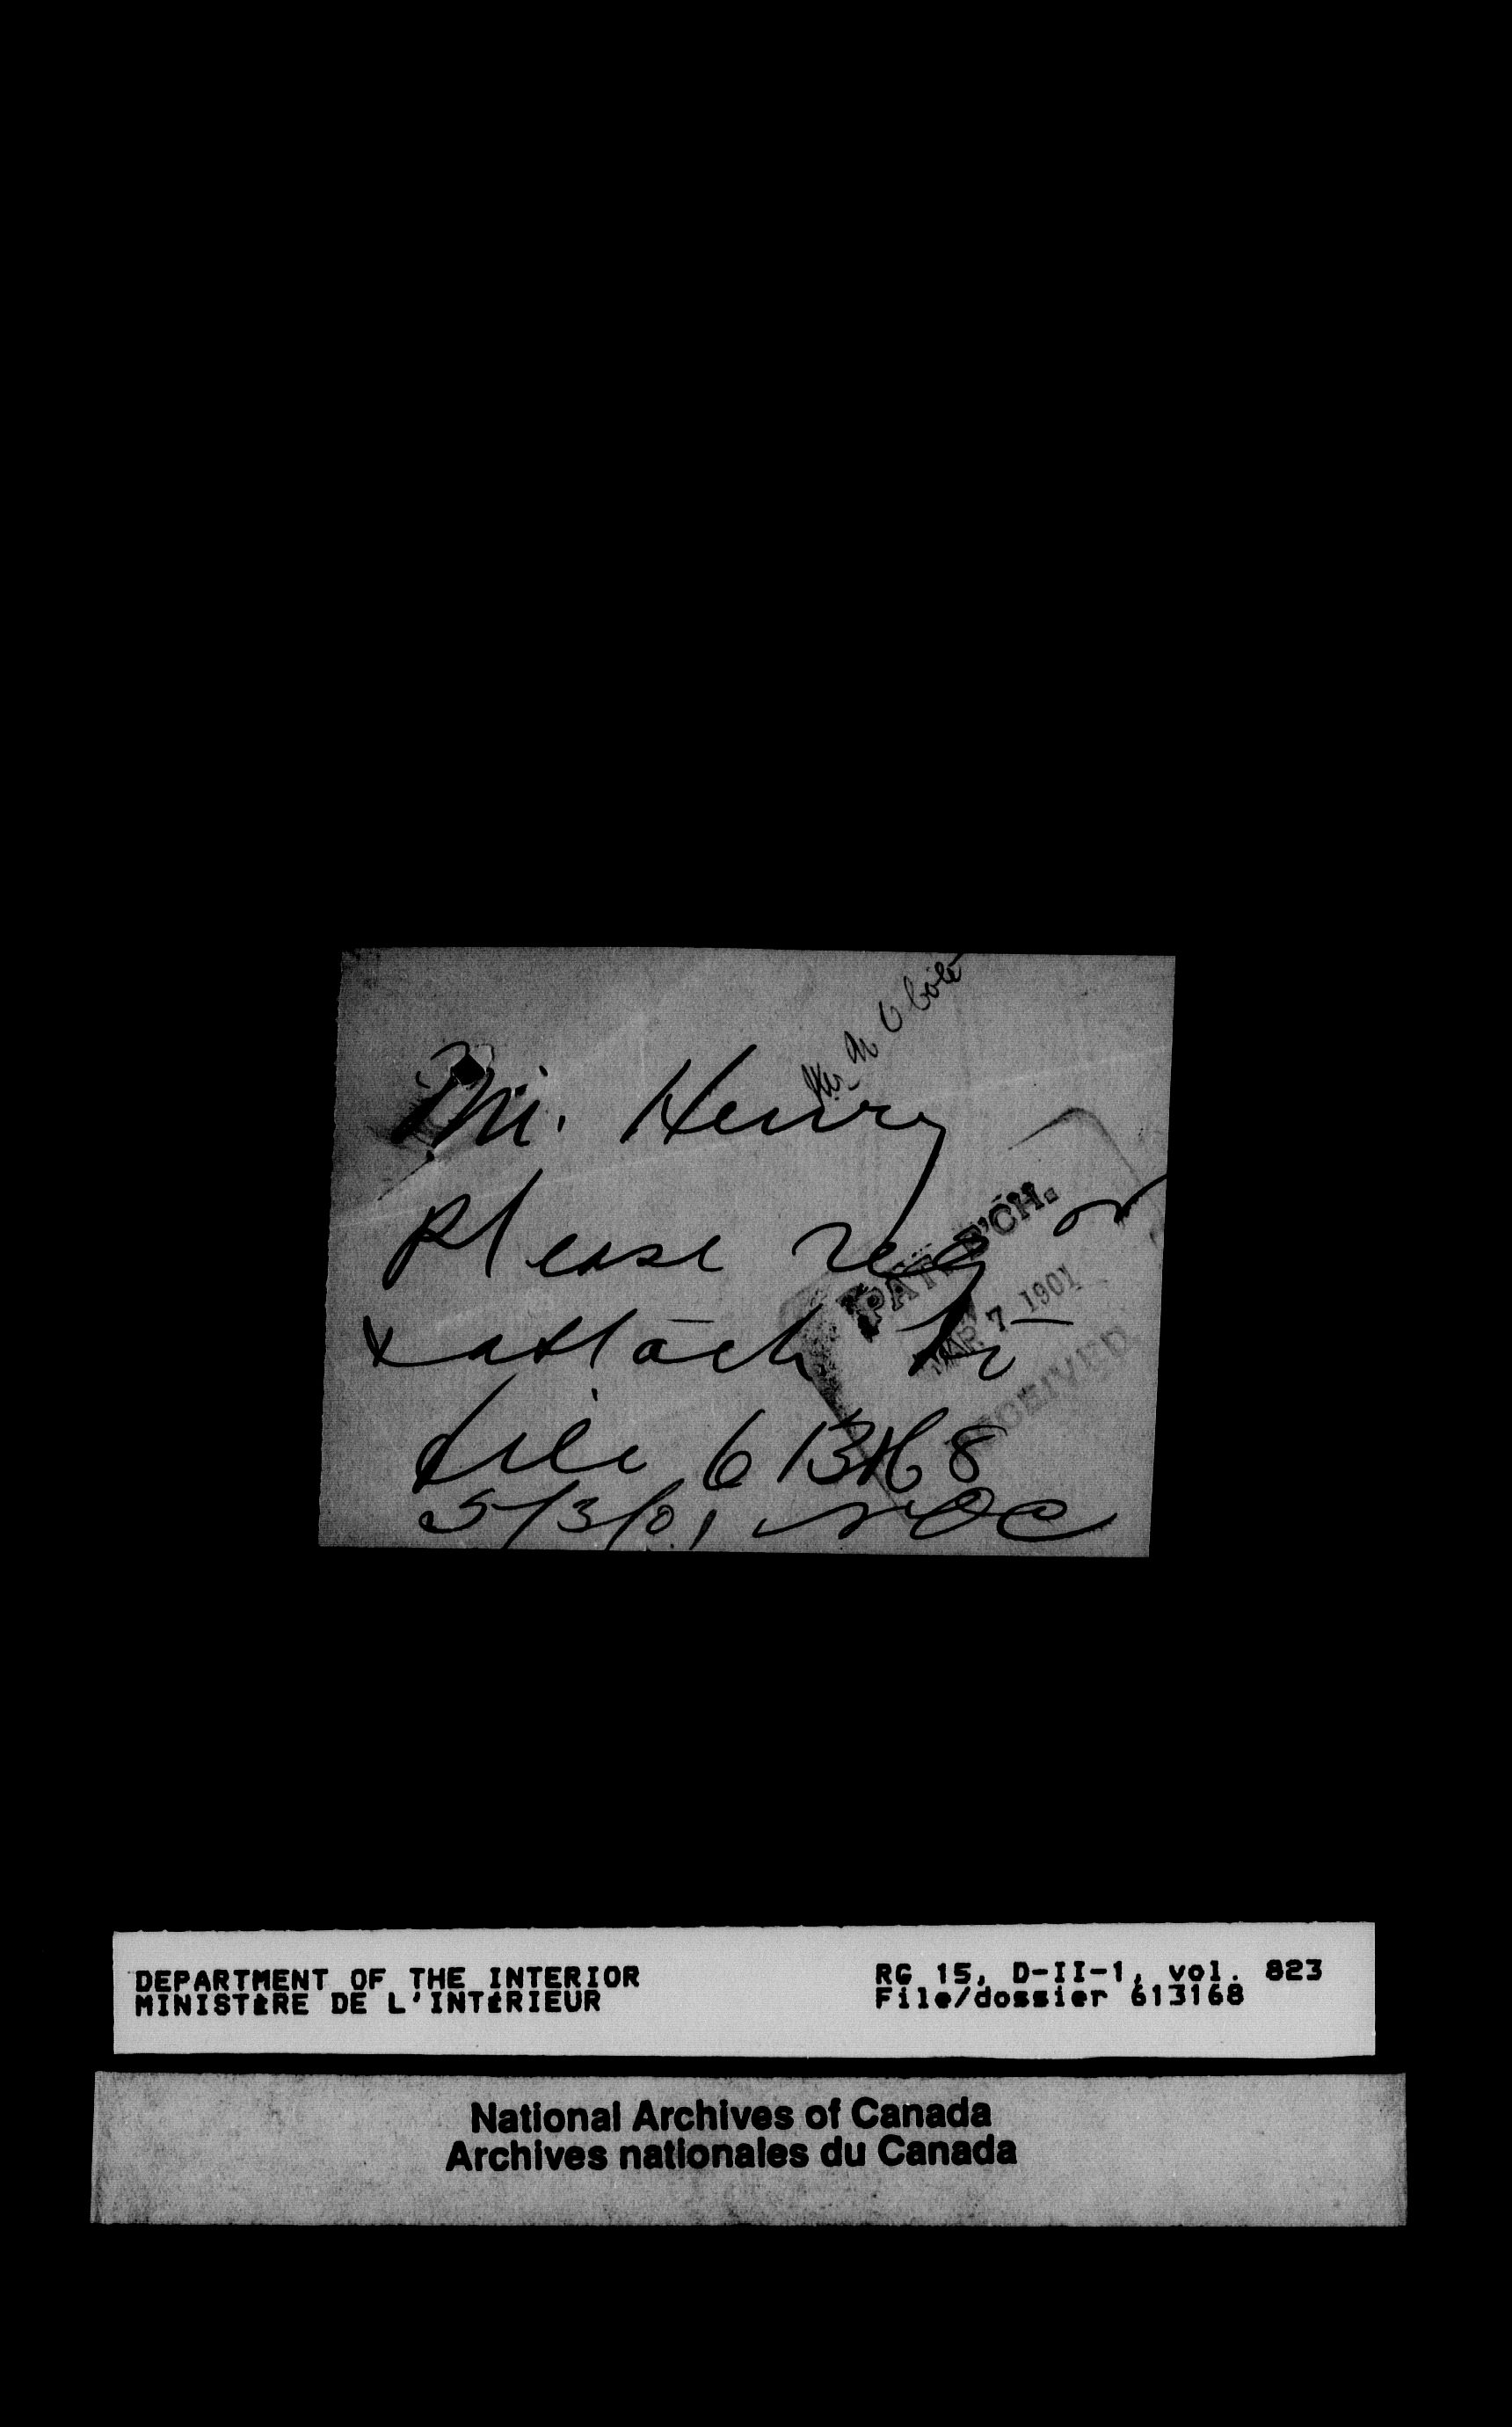 Mr N O Coté
Mr. Henry
Please reg or
& attach to
file 613168
5/3/01 NOC
PAT. B'CH.
MAR 7 1901
RECEIVED.
DEPARTMENT OF THE INTERIOR
MINISTÈRE DE L'INTÉRIEUR
RG 15, D-II-1, vol. 823
File/dossier 613168
National Archives of Canada
Archives nationales du Canada